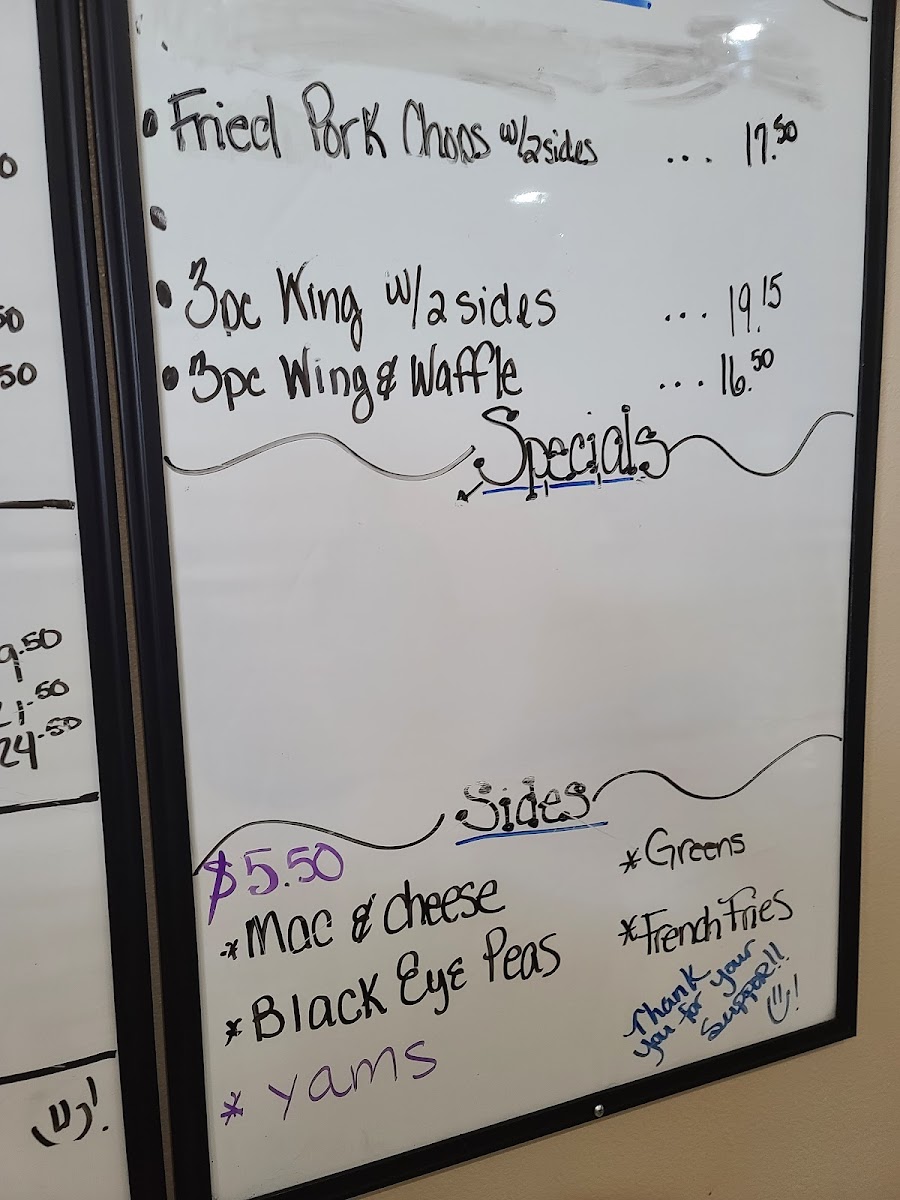 • Fried Pork Chops w/2sides ... 17.50
•
• 3pc Wing w/2sides ... 19.15
• 3pc Wing & Waffle ... 16.50
Specials
Sides
$5.50
* Mac & cheese
* Black Eye Peas
* yams
* Greens
* French Fries
Thank
you for your
Support!!
!
50
9.50
24.50
!